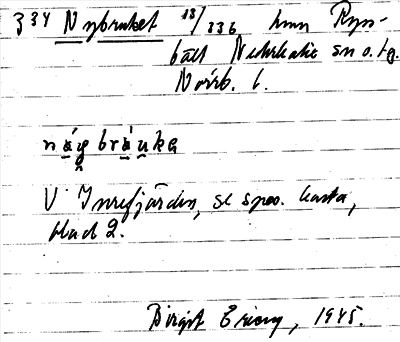 334 Nybruket 13/336 hmn Ryss-
bält Nederkalix sn o. tg.
Norrb. l.
nág bráuka
V Inrefjärden, se spec. karta,
blad 2.
Birgit Ericson, 1945.